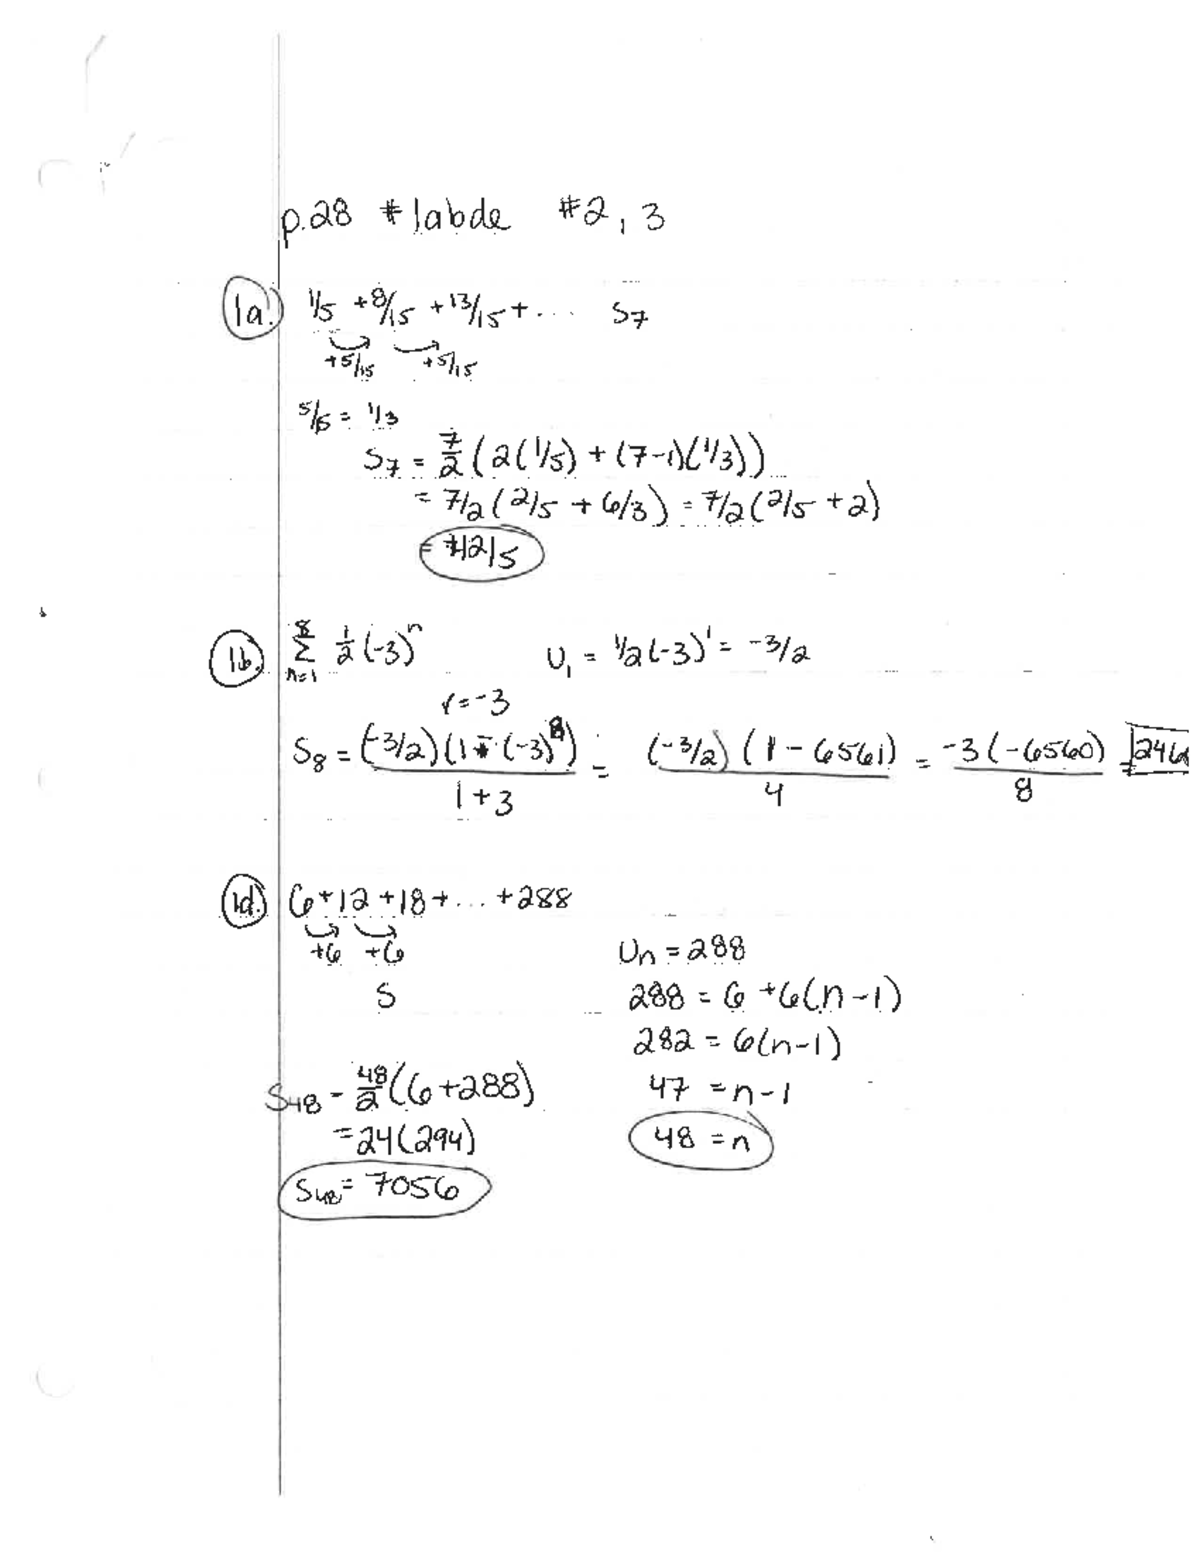 p.28 #1abde #2, 3
1a. 1/5 + 8/15 + 13/15 + ... S7
+5/15 +5/15
5/15 = 1/3
S7 = 7/2 (2(1/5) + (7-1)(1/3))
= 7/2 (2/5 + 6/3) = 7/2 (2/5 + 2)
= 42/5
1b. 8 Σ n=1 1/2 (-3)^n U1 = 1/2(-3)^1 = -3/2
r = -3
S8 = (-3/2)(1 - (-3)^8) / 1+3 = (-3/2)(1 - 6561) / 4 = -3(-6560) / 8 = 2460
1d. 6+12+18+ ... +288
+6 +6
Un = 288
S
288 = 6 + 6(n-1)
282 = 6(n-1)
S48 = 48/2 (6+288)
47 = n-1
= 24(294)
48 = n
S48 = 7056